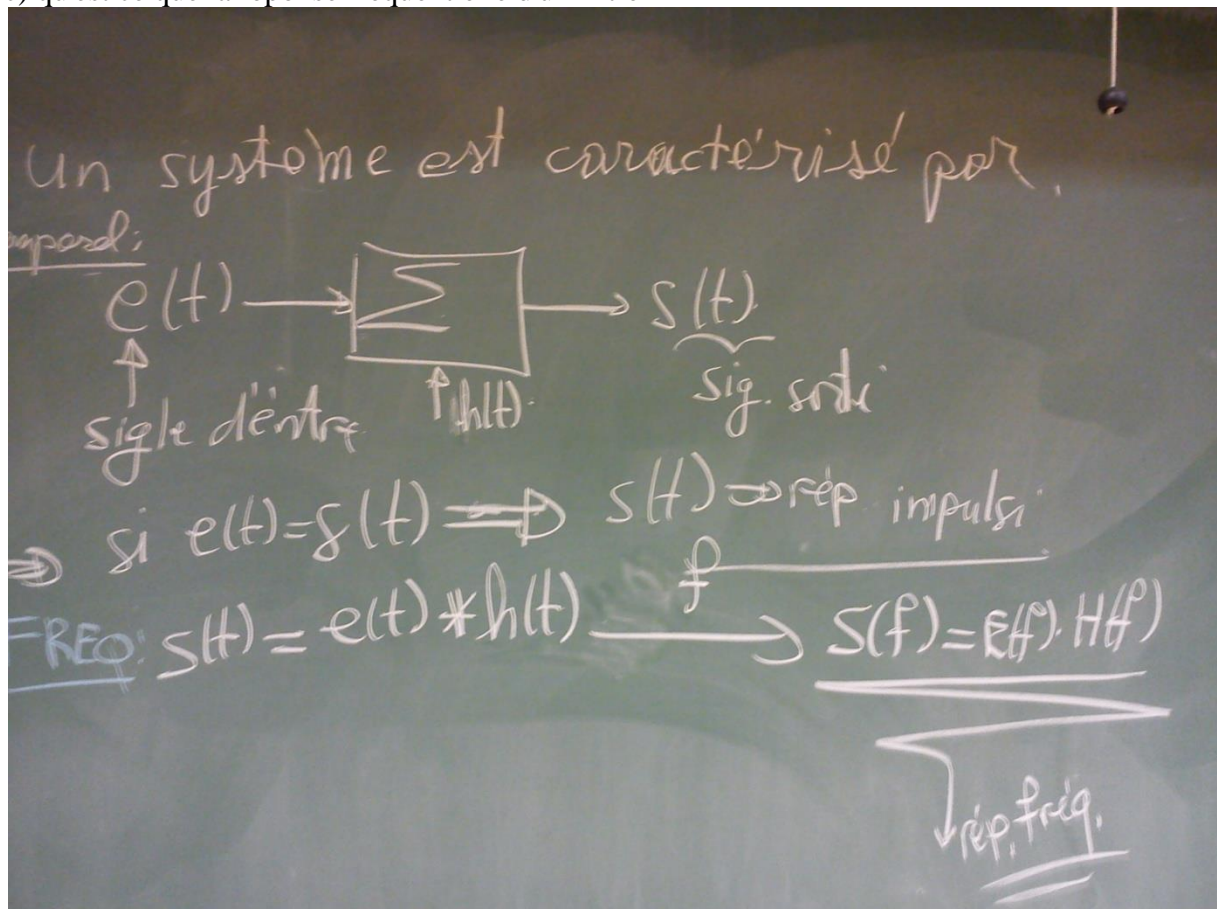 un système est caractérisé par.
e(t) → Σ → s(t)
sigle d'entre h(t). sig. sorti
⇒ si e(t)=δ(t) ⇒ s(t) ⇒ rép impulsi
FREQ: s(t) = e(t) * h(t) f → S(f)=E(f).H(f)
rép. fréq.